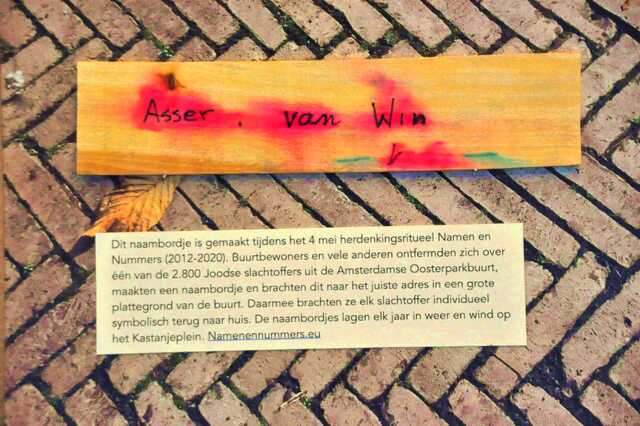 Asser. van Win
Dit naambordje is gemaakt tijdens het 4 mei herdenkingsritueel Namen en
Nummers (2012-2020). Buurtbewoners en vele anderen ontfermden zich over
één van de 2.800 Joodse slachtoffers uit de Amsterdamse Oosterparkbuurt,
maakten een naambordje en brachten dit naar het juiste adres in een grote
plattegrond van de buurt. Daarmee brachten ze elk slachtoffer individueel
symbolisch terug naar huis. De naambordjes lagen elk jaar in weer en wind op
het Kastanjeplein. Namenennummers.eu